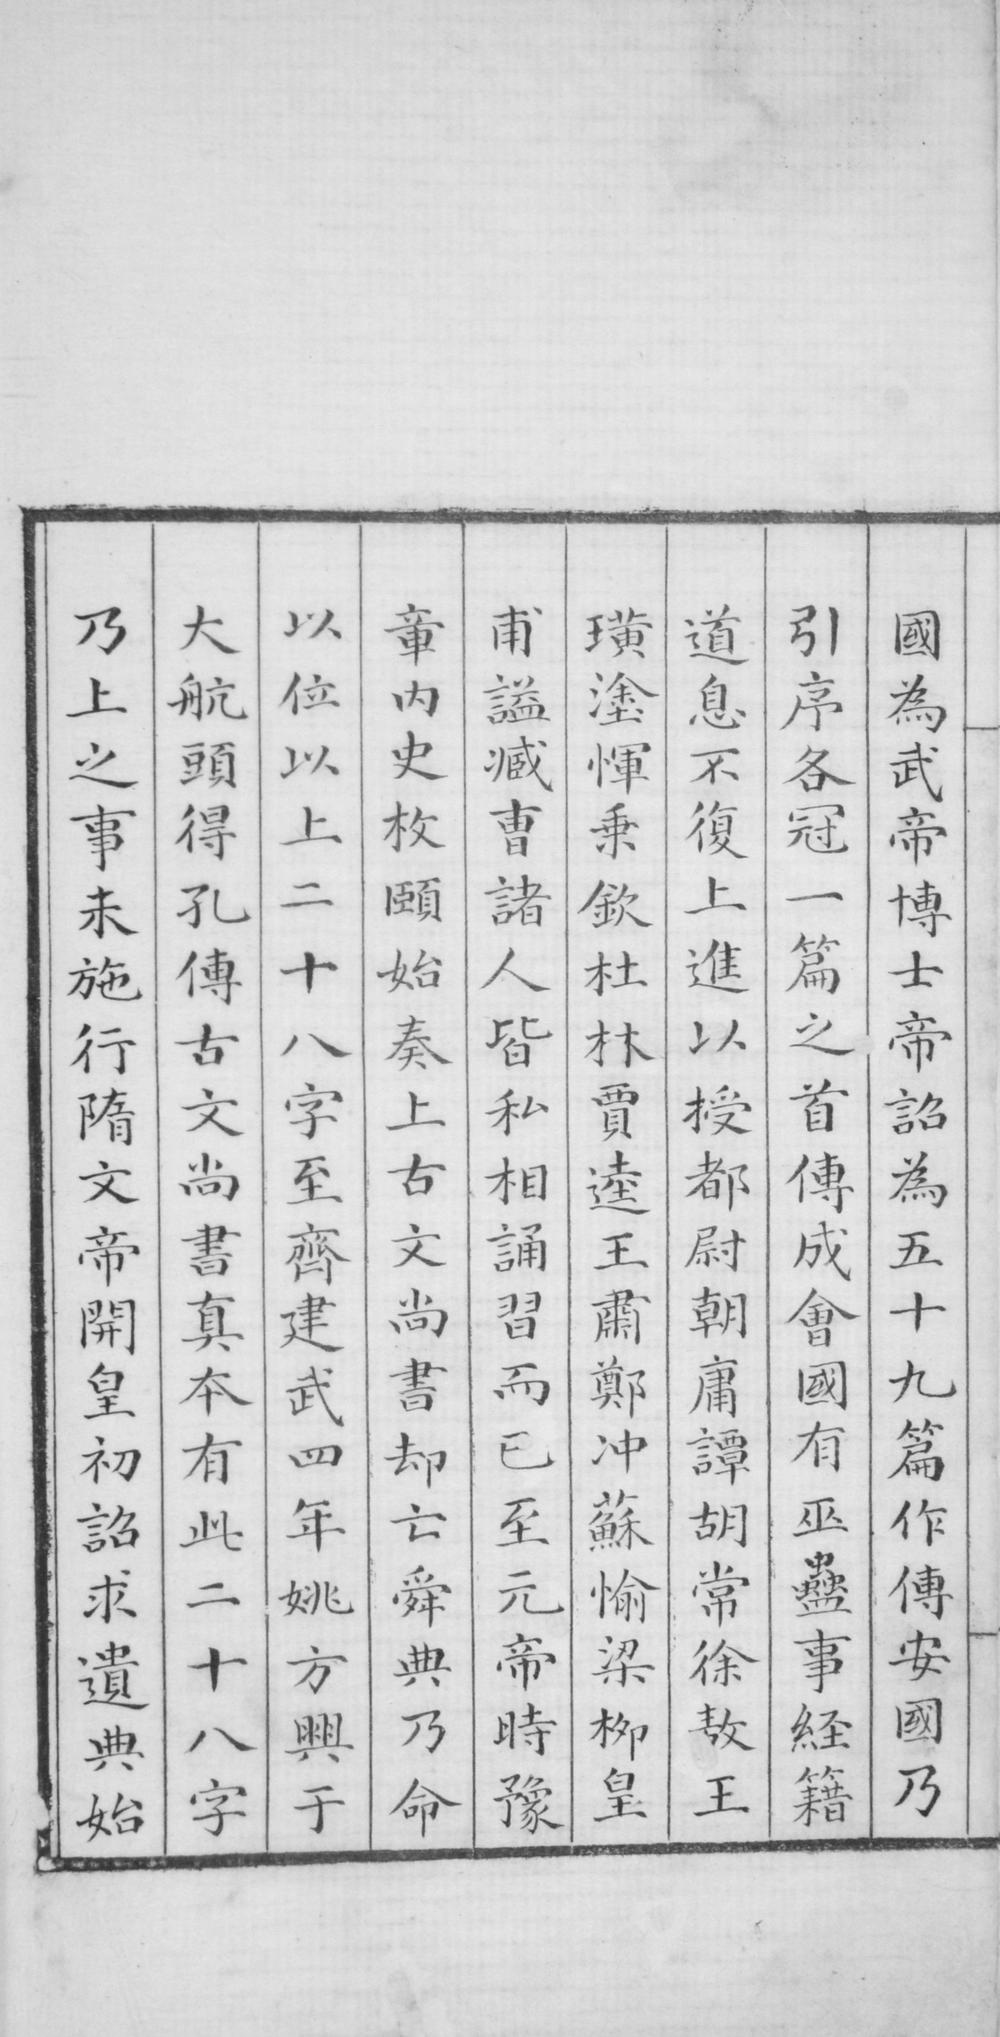 國為武帝博士帝詔為五十九篇作傳安國乃
引序各冠一篇之首傳成會國有巫蠱事経籍
道息不復上進以授都尉朝庸譚胡常徐敖王
璜塗惲乗欽杜林賈逵王肅鄭冲蘇愉梁栁皇
甫謐臧曺諸人皆私相誦習而已至元帝時豫
章內史枚頤始奏上古文尚書却亡舜典乃命
以位以上二十八字至齊建武四年姚方興于
大航頭得孔傳古文尚書真本有此二十八字
乃上之事未施行隋文帝開皇初詔求遺典始